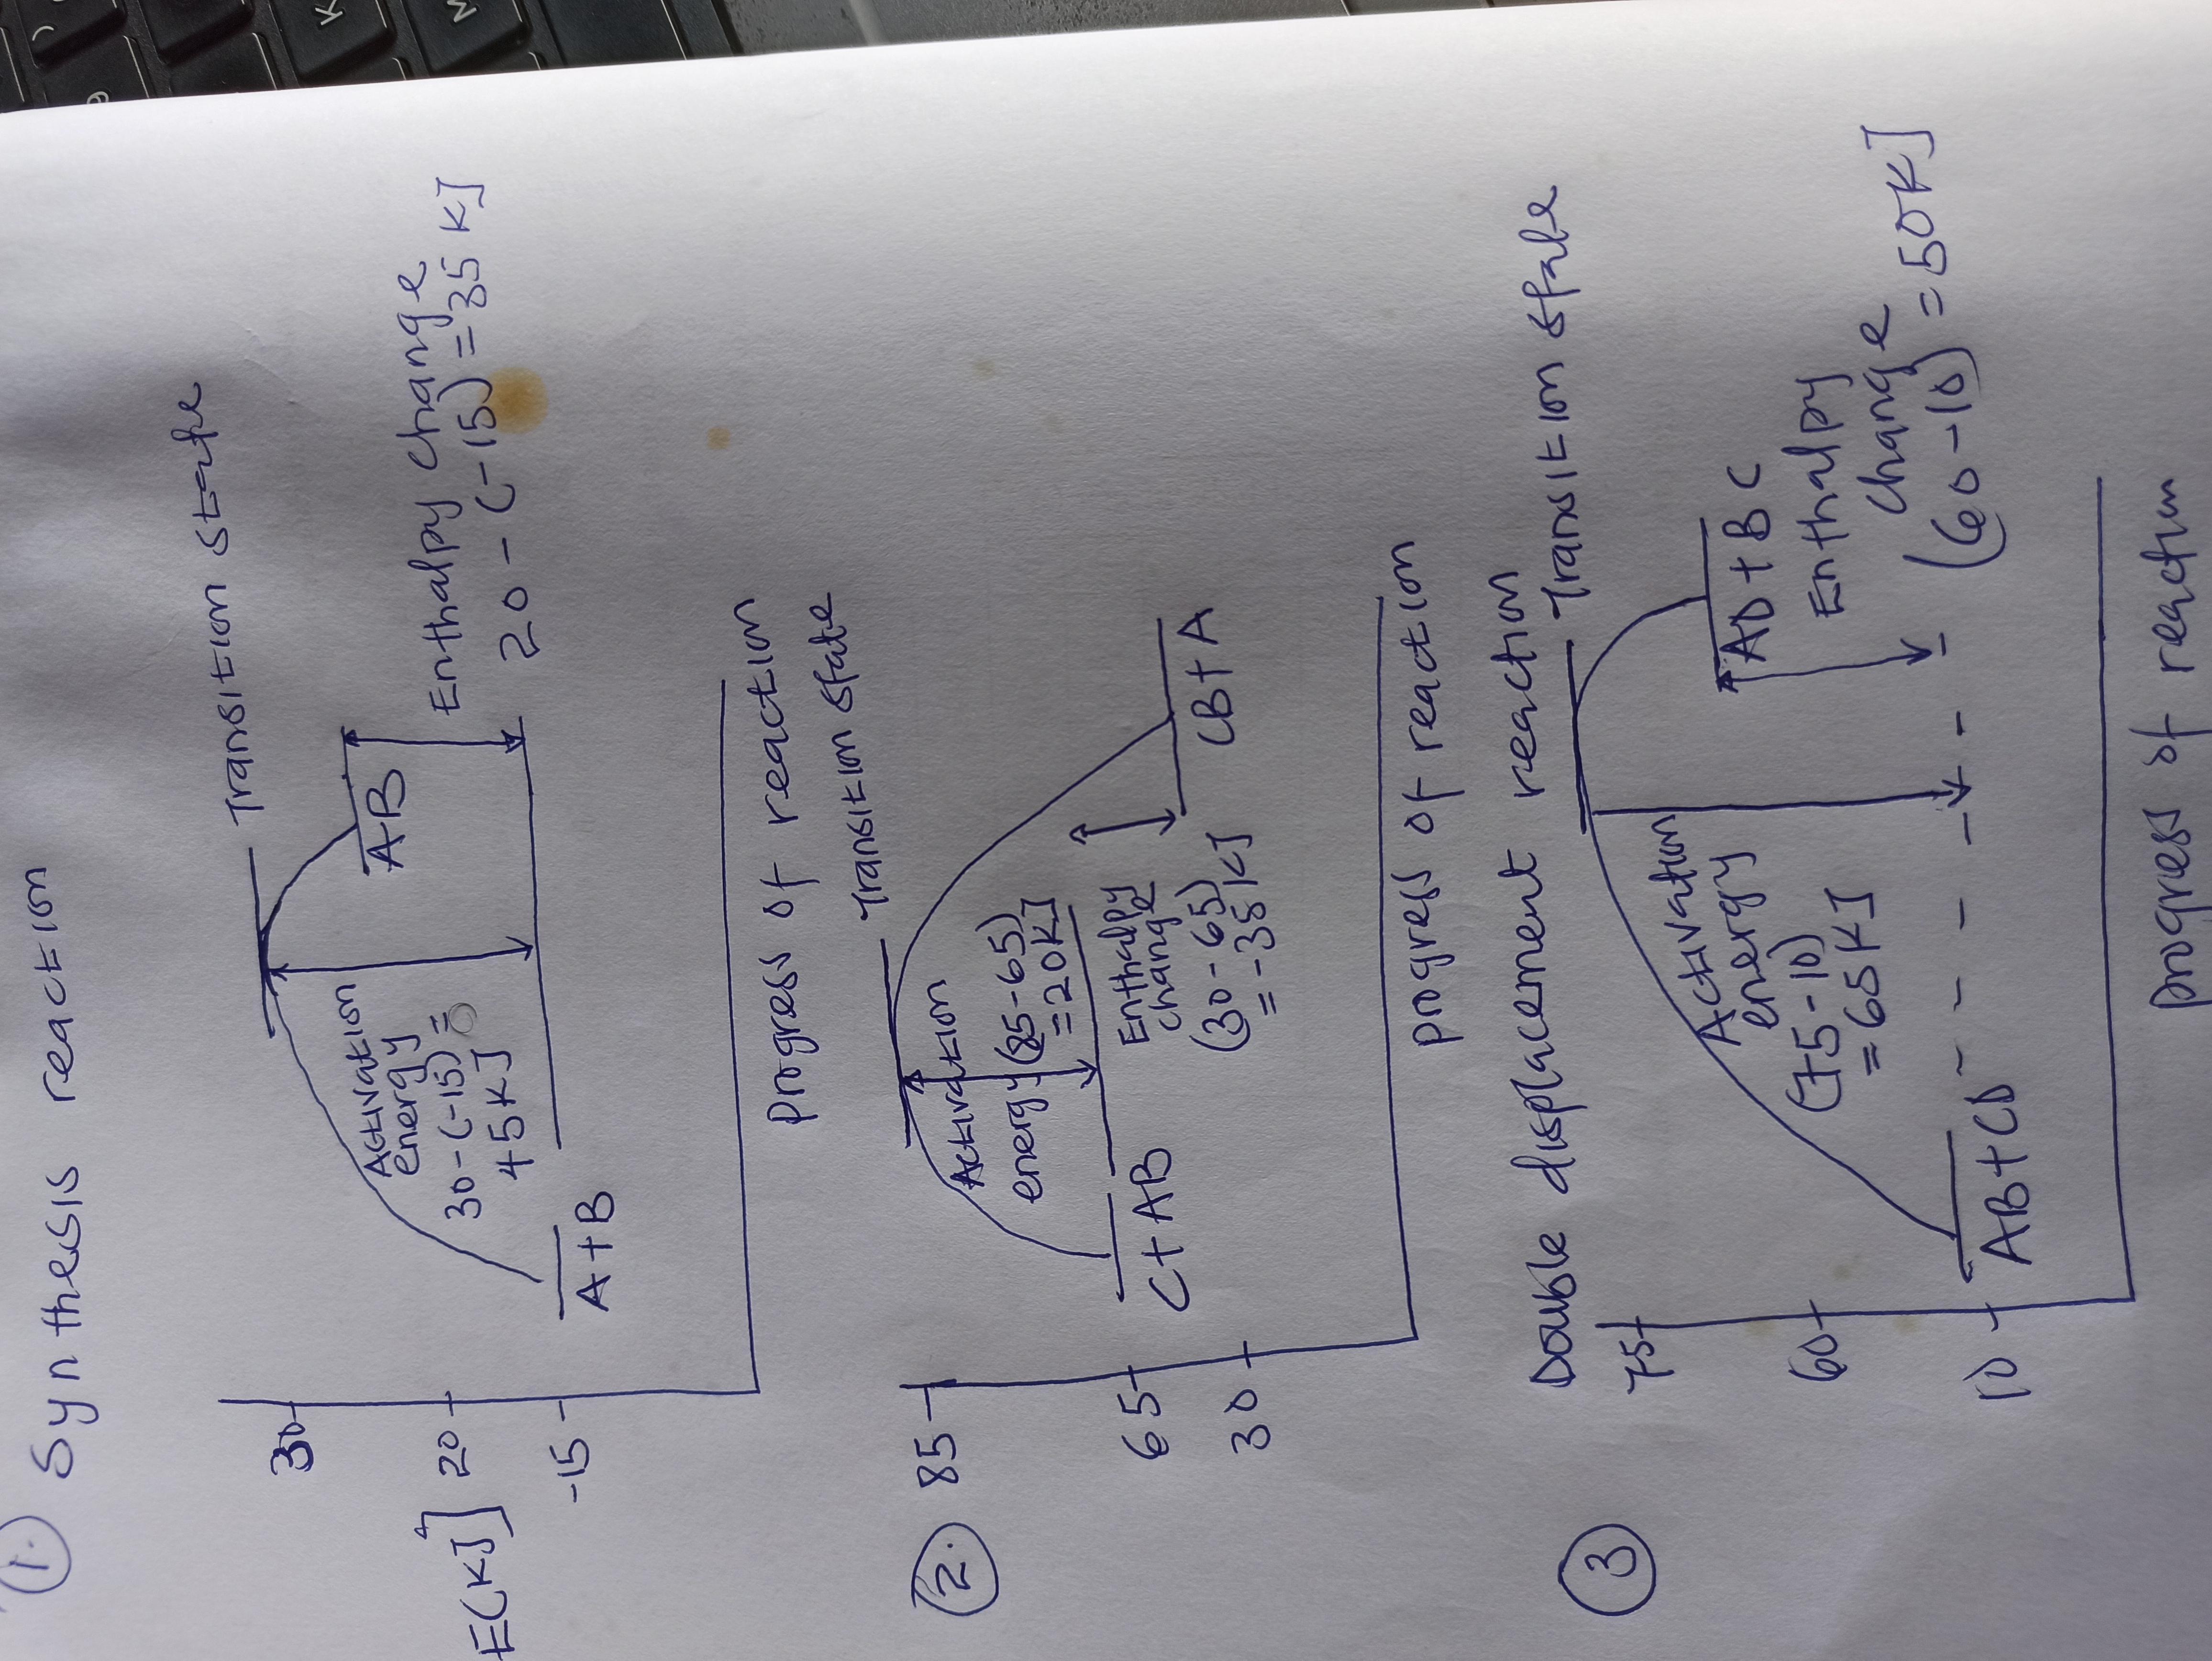 1. Synthesis reaction
Transition state
30
Activation
energy
30-(-15)=
45KJ
AB
Enthalpy change
20-(-15)=35 KJ
E(KJ)
20
-15
A+B
Progress of reaction
2.
Transition state
85
Activation
energy (85-65)
=20KJ
65
C+AB
Enthalpy
change
(30-65)
=-35KJ
30
CB+A
progress of reaction
3
Double displacement reaction
Transition state
75
Activation
energy
(75-10)
=65KJ
60
AD+BC
Enthalpy
change
(60-10)=50KJ
10
AB+CD
progress of reactun
K
M